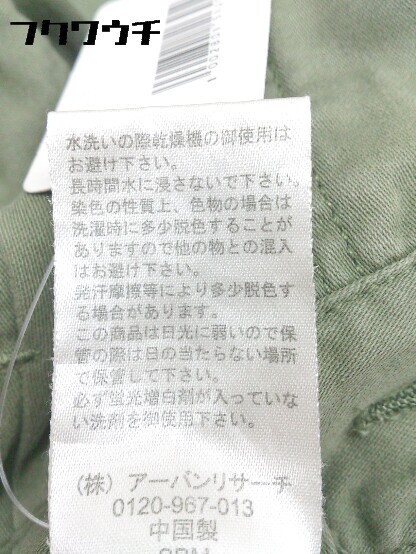 フクワウチ
水洗いの際乾燥機の御使用は
お避け下さい。
長時間水に浸さないで下さい。
染色の性質上、色物の場合は
洗濯時に多少脱色することが
ありますので他の物との混入
はお避け下さい。
発汗摩擦等により多少脱色す
る場合があります。
この商品は日光に弱いので保
管の際は日の当たらない場所
で保管して下さい。
必ず蛍光増白剤が入っていな
い洗剤を御使用下さい。
(株) アーバンリサーチ
0120-967-013
中国製